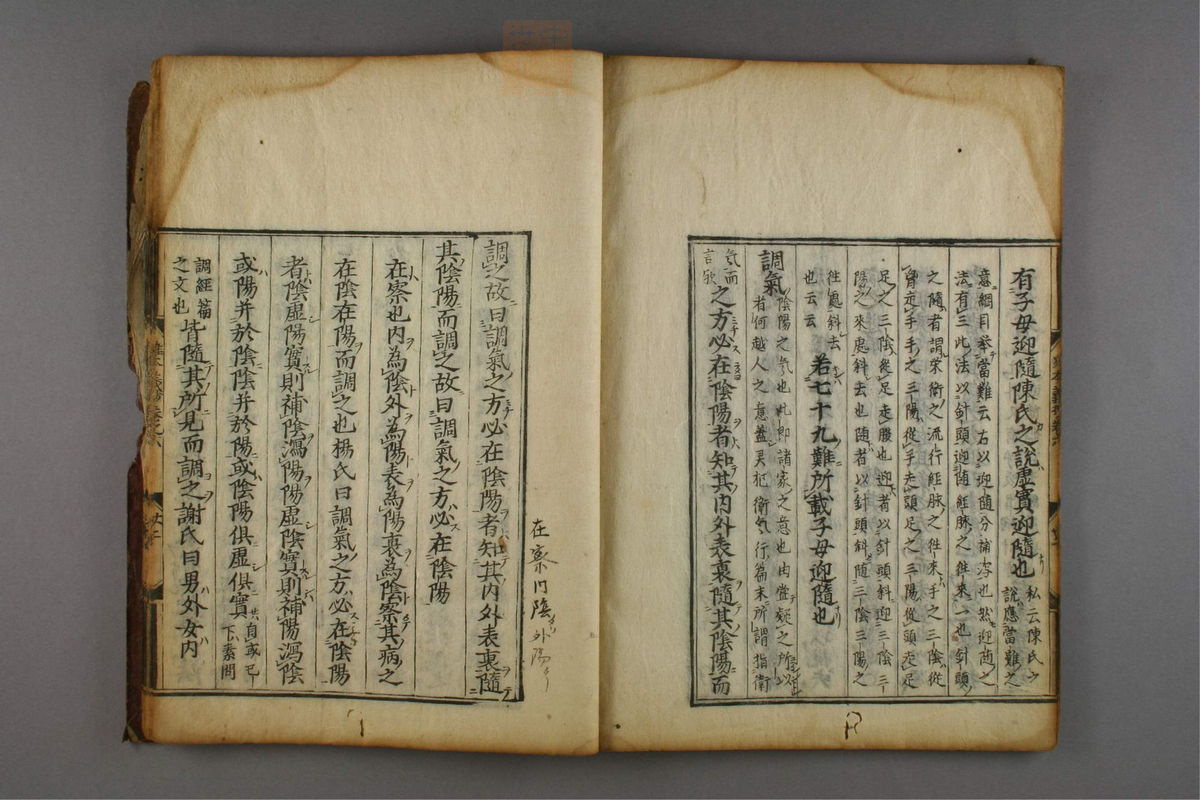 有子母迎隨陳氏之說虛實迎隨也 私云陳氏之
說應當難之
意綱目參當難云右以迎隨分補瀉也然迎隨之
法有三此法以針頭迎隨經脉之往來一也針頭
之隨者謂榮衛之流行經脉之往來手之三陰從
胷走手手之三陽從手走頭足之三陽從頭走足
足之三陰從足走腹也迎者以針頭斜迎三陰三
陽之來處斜去也隨者以針頭斜隨三陰三陽之
往處斜去
也云云 若七十九難所載子母迎隨也
調氣 陰陽之氣也此即諸家之意也由當疑之所以
者何越人之意蓋灵枢衛氣行篇末所謂指衛
氣而
言歟 之方必在陰陽者知其内外表裏隨其陰陽而
調之故曰調氣之方必在陰陽者知其内外表裏隨
其陰陽而調之故曰調氣之方必在陰陽
在察也内為陰外為陽表為陽裏為陰察其病之
在陰在陽而調之也楊氏曰調氣之方必在陰陽
者陰虛陽實則補陰瀉陽陽虛陰實則補陽瀉陰
或陽并於陰陰并於陽或陰陽俱虛俱實 共自或已
下素問
調經篇
之文也 皆隨其所見而調之謝氏曰男外女内
在察内陰外陽